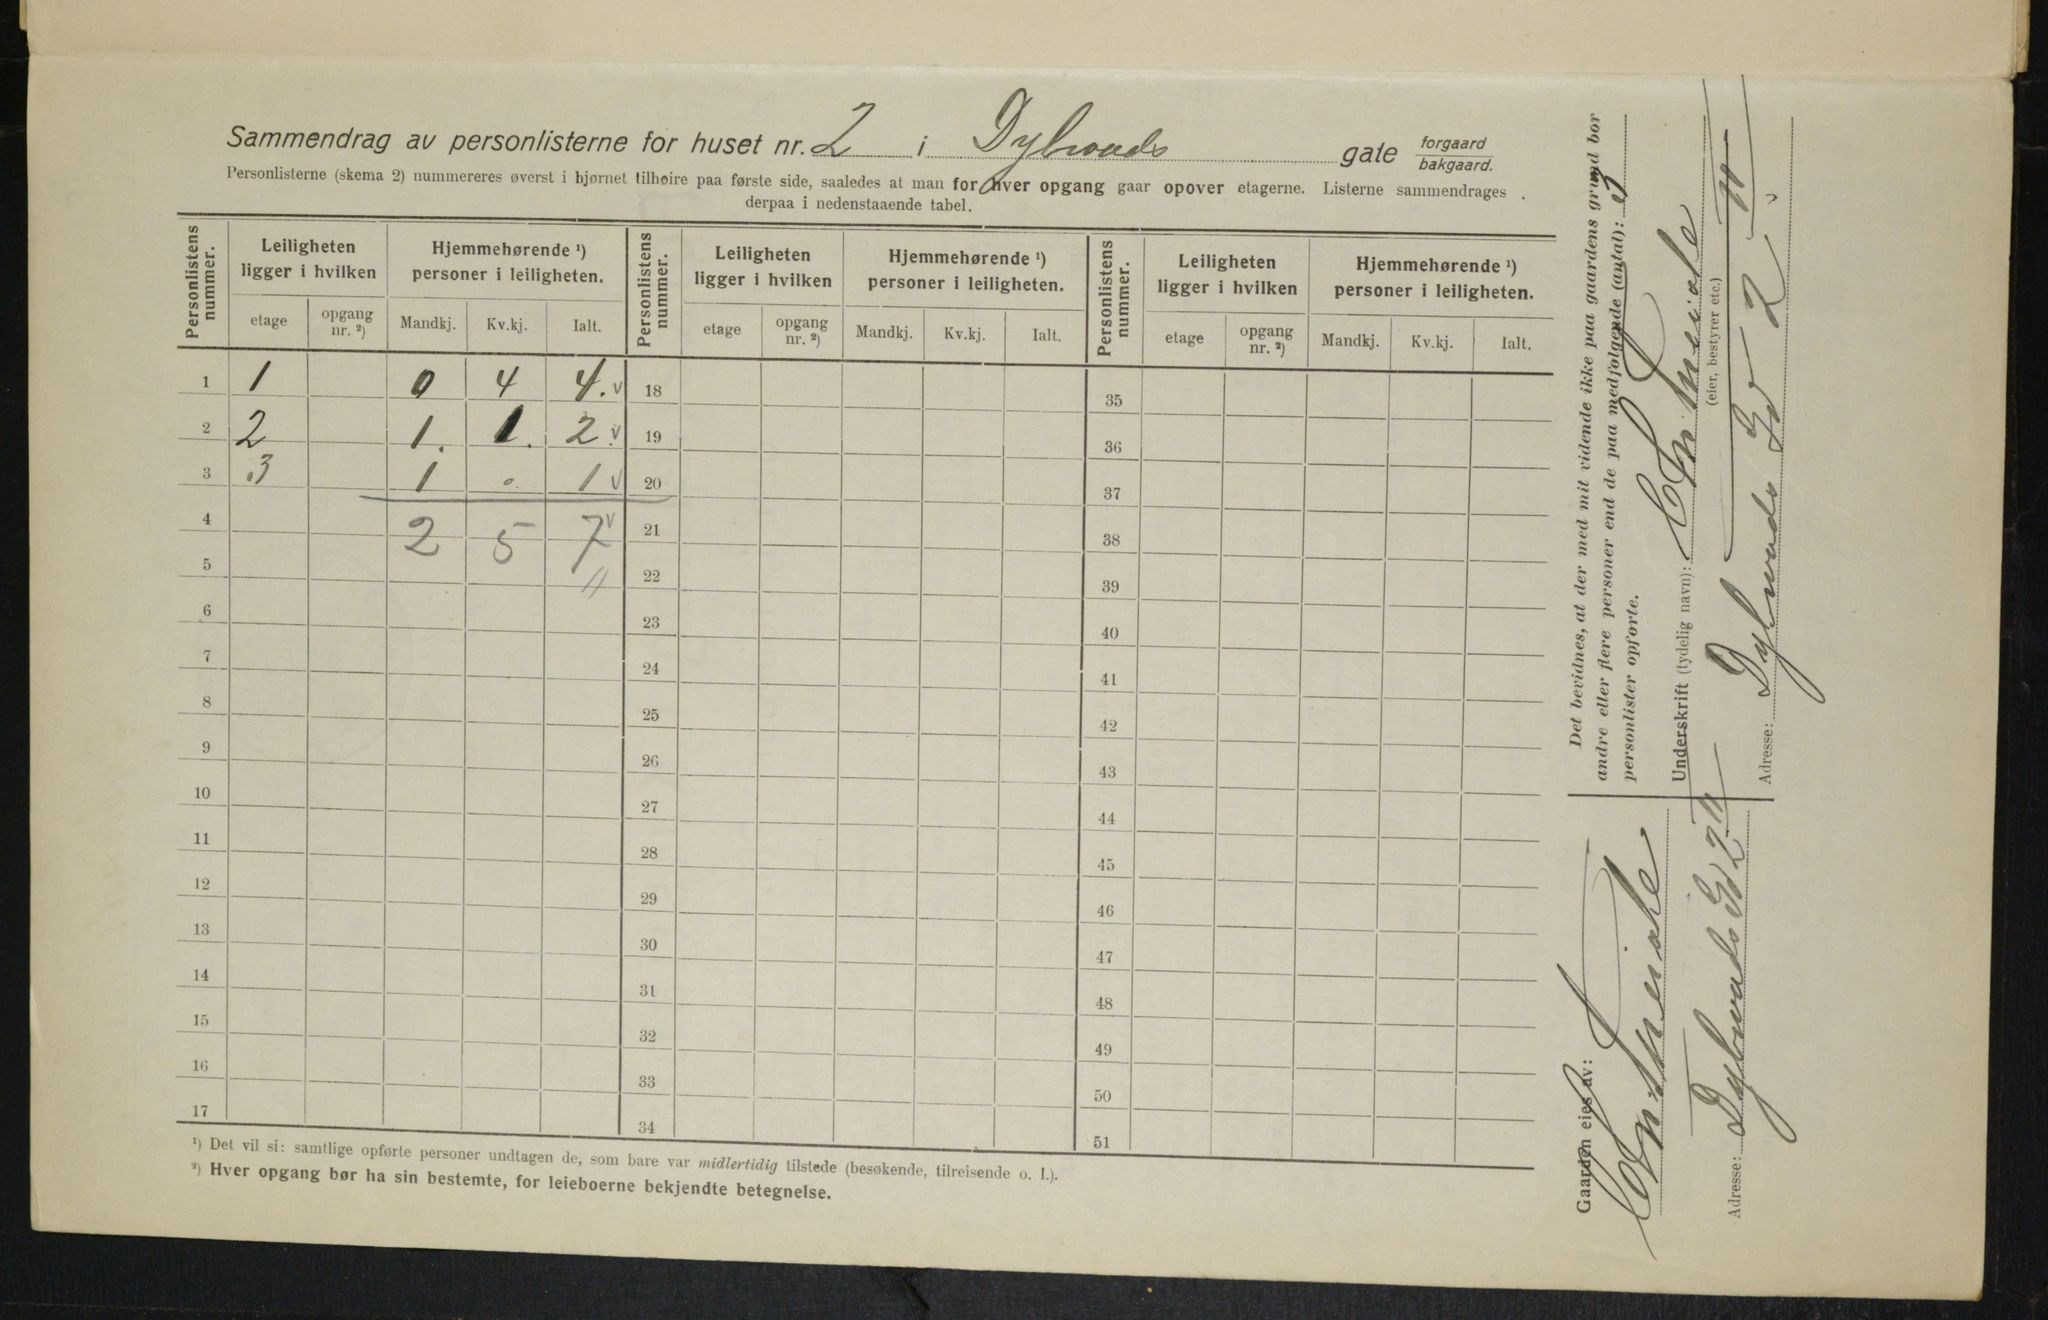 Sammendrag av personlisterne for huset nr. 2 i Dybvads gate forgaard bakgaard.
Personlisterne (skema 2) nummereres øverst i hjørnet tilhøire paa første side, saaledes at man for hver opgang gaar opover etagerne. Listerne sammendrages
derpaa i nedenstaaende tabel.
Personlistens nummer. Leiligheten ligger i hvilken Hjemmehørende ¹) personer i leiligheten. Personlistens nummer. Leiligheten ligger i hvilken Hjemmehørende ¹) personer i leiligheten. Personlistens nummer. Leiligheten ligger i hvilken Hjemmehørende ¹) personer i leiligheten.
etage opgang nr. ²) Mandkj. Kv.kj. Ialt. etage opgang nr. ²) Mandkj. Kv.kj. Ialt. etage opgang nr. ²) Mandkj. Kv.kj. Ialt.
1 1 0 4 4. v 18 35
2 2 1. 1. 2 v 19 36
3 3 1 0 1 v 20 37
4 2 5 7 v 21 38
5 22 39
6 23 40
7 24 41
8 25 42
9 26 43
10 27 44
11 28 45
12 29 46
13 30 47
14 31 48
15 32 49
16 33 50
17 34 51
¹) Det vil si: samtlige opførte personer undtagen de, som bare var midlertidig tilstede (besøkende, tilreisende o. l.).
²) Hver opgang bør ha sin bestemte, for leieboerne bekjendte betegnelse.
Det bevidnes, at der med mit vidende ikke paa gaardens grund bor
andre eller flere personer end de paa medfølgende (antal): 3
personlister opførte.
Underskrift (tydelig navn):
(eier, bestyrer etc.)
Adresse: Dybvads Gd 2
Gaarden eies av:
Adresse: Dybvads Gd 2